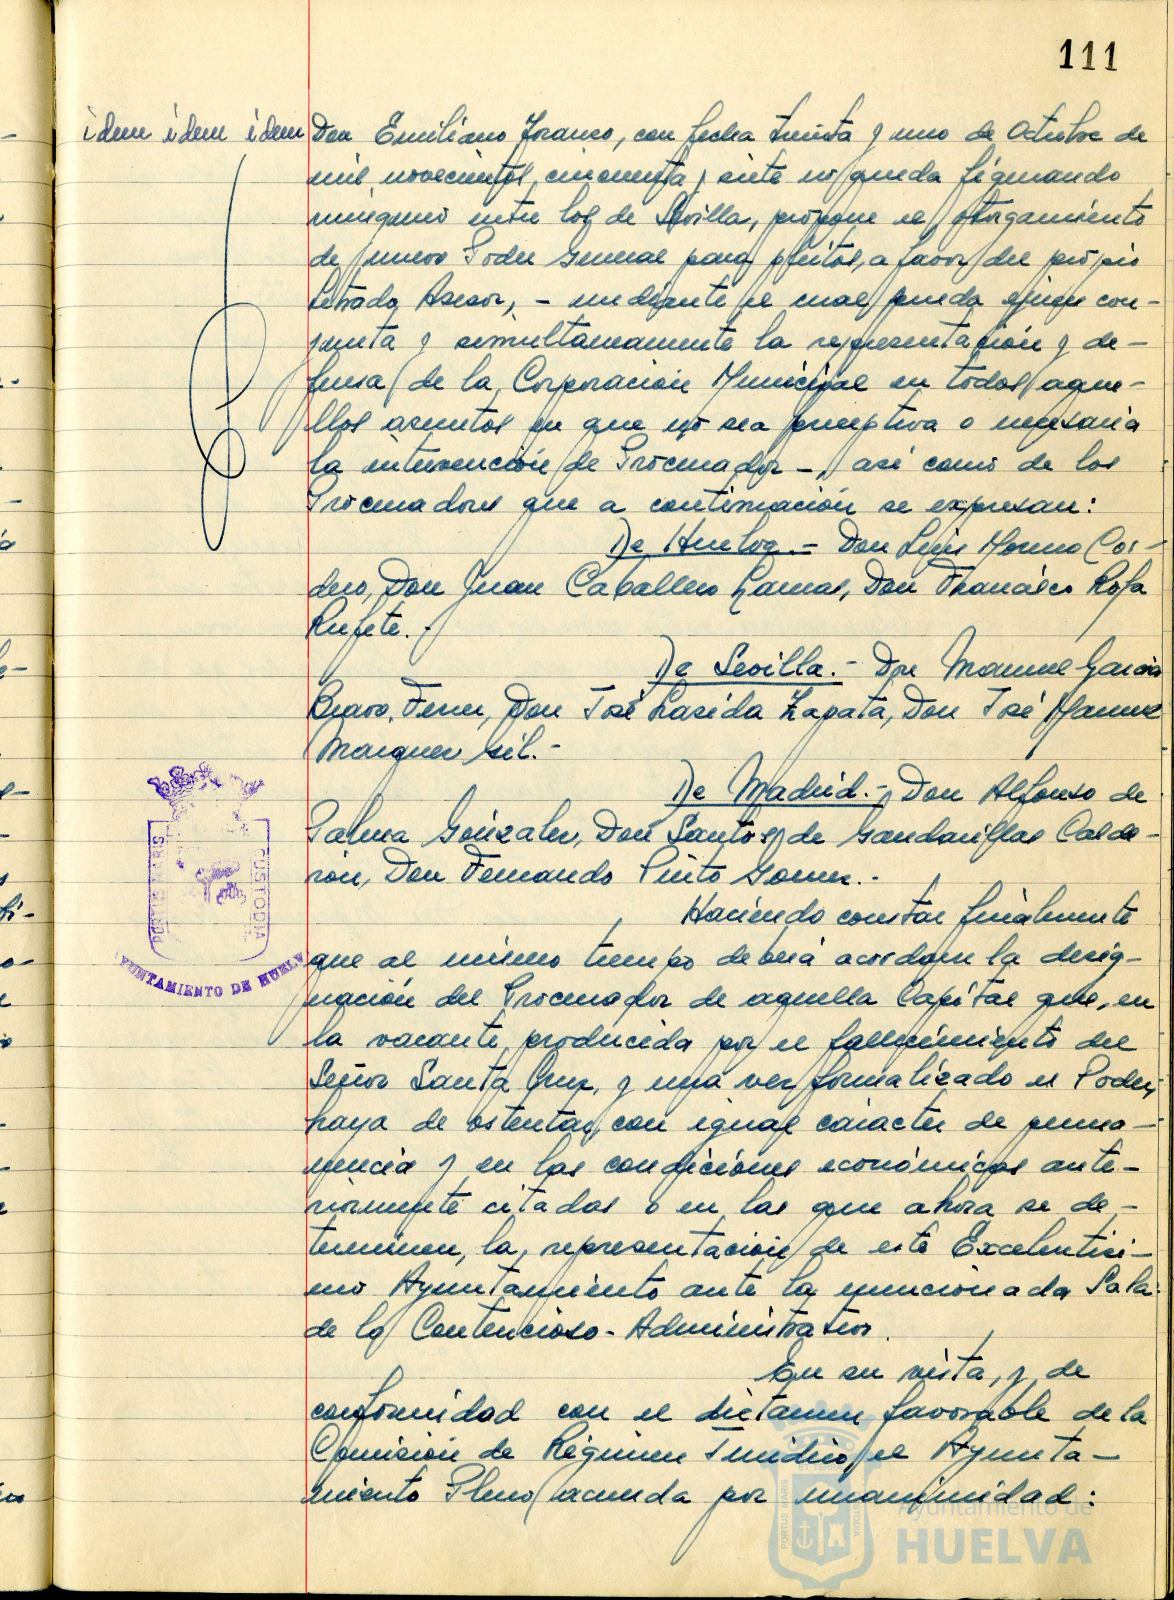 111
idem idem idem
Don Emiliano Franco, con fecha treinta y uno de Octubre de
mil novecientos cincuenta y siete no queda figurando
ninguno entre los de Sevilla, propone el otorgamiento
de nuevo Poder General para pleitos, a favor del propio
Letrado Asesor, - mediante el cual pueda ejercer con-
junta y simultaneamente la representación y de-
fensa de la Corporación Municipal en todos aque-
llos asuntos en que no sea preceptiva o necesaria
la intervención de Procurador -, así como de los
Procuradores que a continuación se expresan:
De Huelva.- Don Luis Moreno Cor-
dero, Don Juan Caballero Lamas, Don Francisco Rofa
Rufete.-
De Sevilla.- Don Manuel García
Bravo Ferrer, Don José Lasida Zapata, Don José Manuel
Marquez Gil.-
De Madrid.- Don Alfonso de
Palma Gonzalez, Don Santos de Gandarillas Calde-
rón, Don Fernando Pinto Gomez.-
Haciendo constar finalmente
que al mismo tiempo deberá acordarse la desig-
nación del Procurador de aquella Capital que, en
la vacante producida por el fallecimiento del
Señor Santa Cruz, y una vez formalizado el Poder,
haya de ostentar, con igual carácter de perma-
nencia y en las condiciones económicas ante-
riormente citadas o en las que ahora se de-
terminen, la representación de este Excelentísi-
mo Ayuntamiento ante la mencionada Sala
de lo Contencioso-Administrativo.
En su vista, y de
conformidad con el dictamen favorable de la
Comisión de Régimen Jurídico, el Ayunta-
miento Pleno acuerda por unanimidad:
PORTUS MARIS
CUSTODIA
AYUNTAMIENTO DE HUELVA
PORTUS MARIS
CUSTODIA
Ayuntamiento de
HUELVA